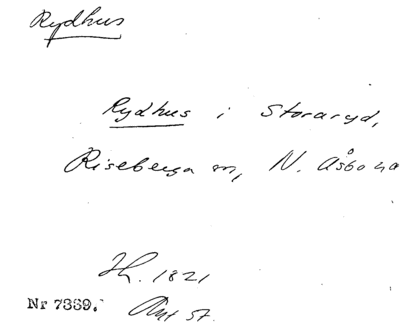 Rydhus
Rydhus i Storaryd,
Riseberga sn, N. Åsbo hd
1821
Nr 7389.